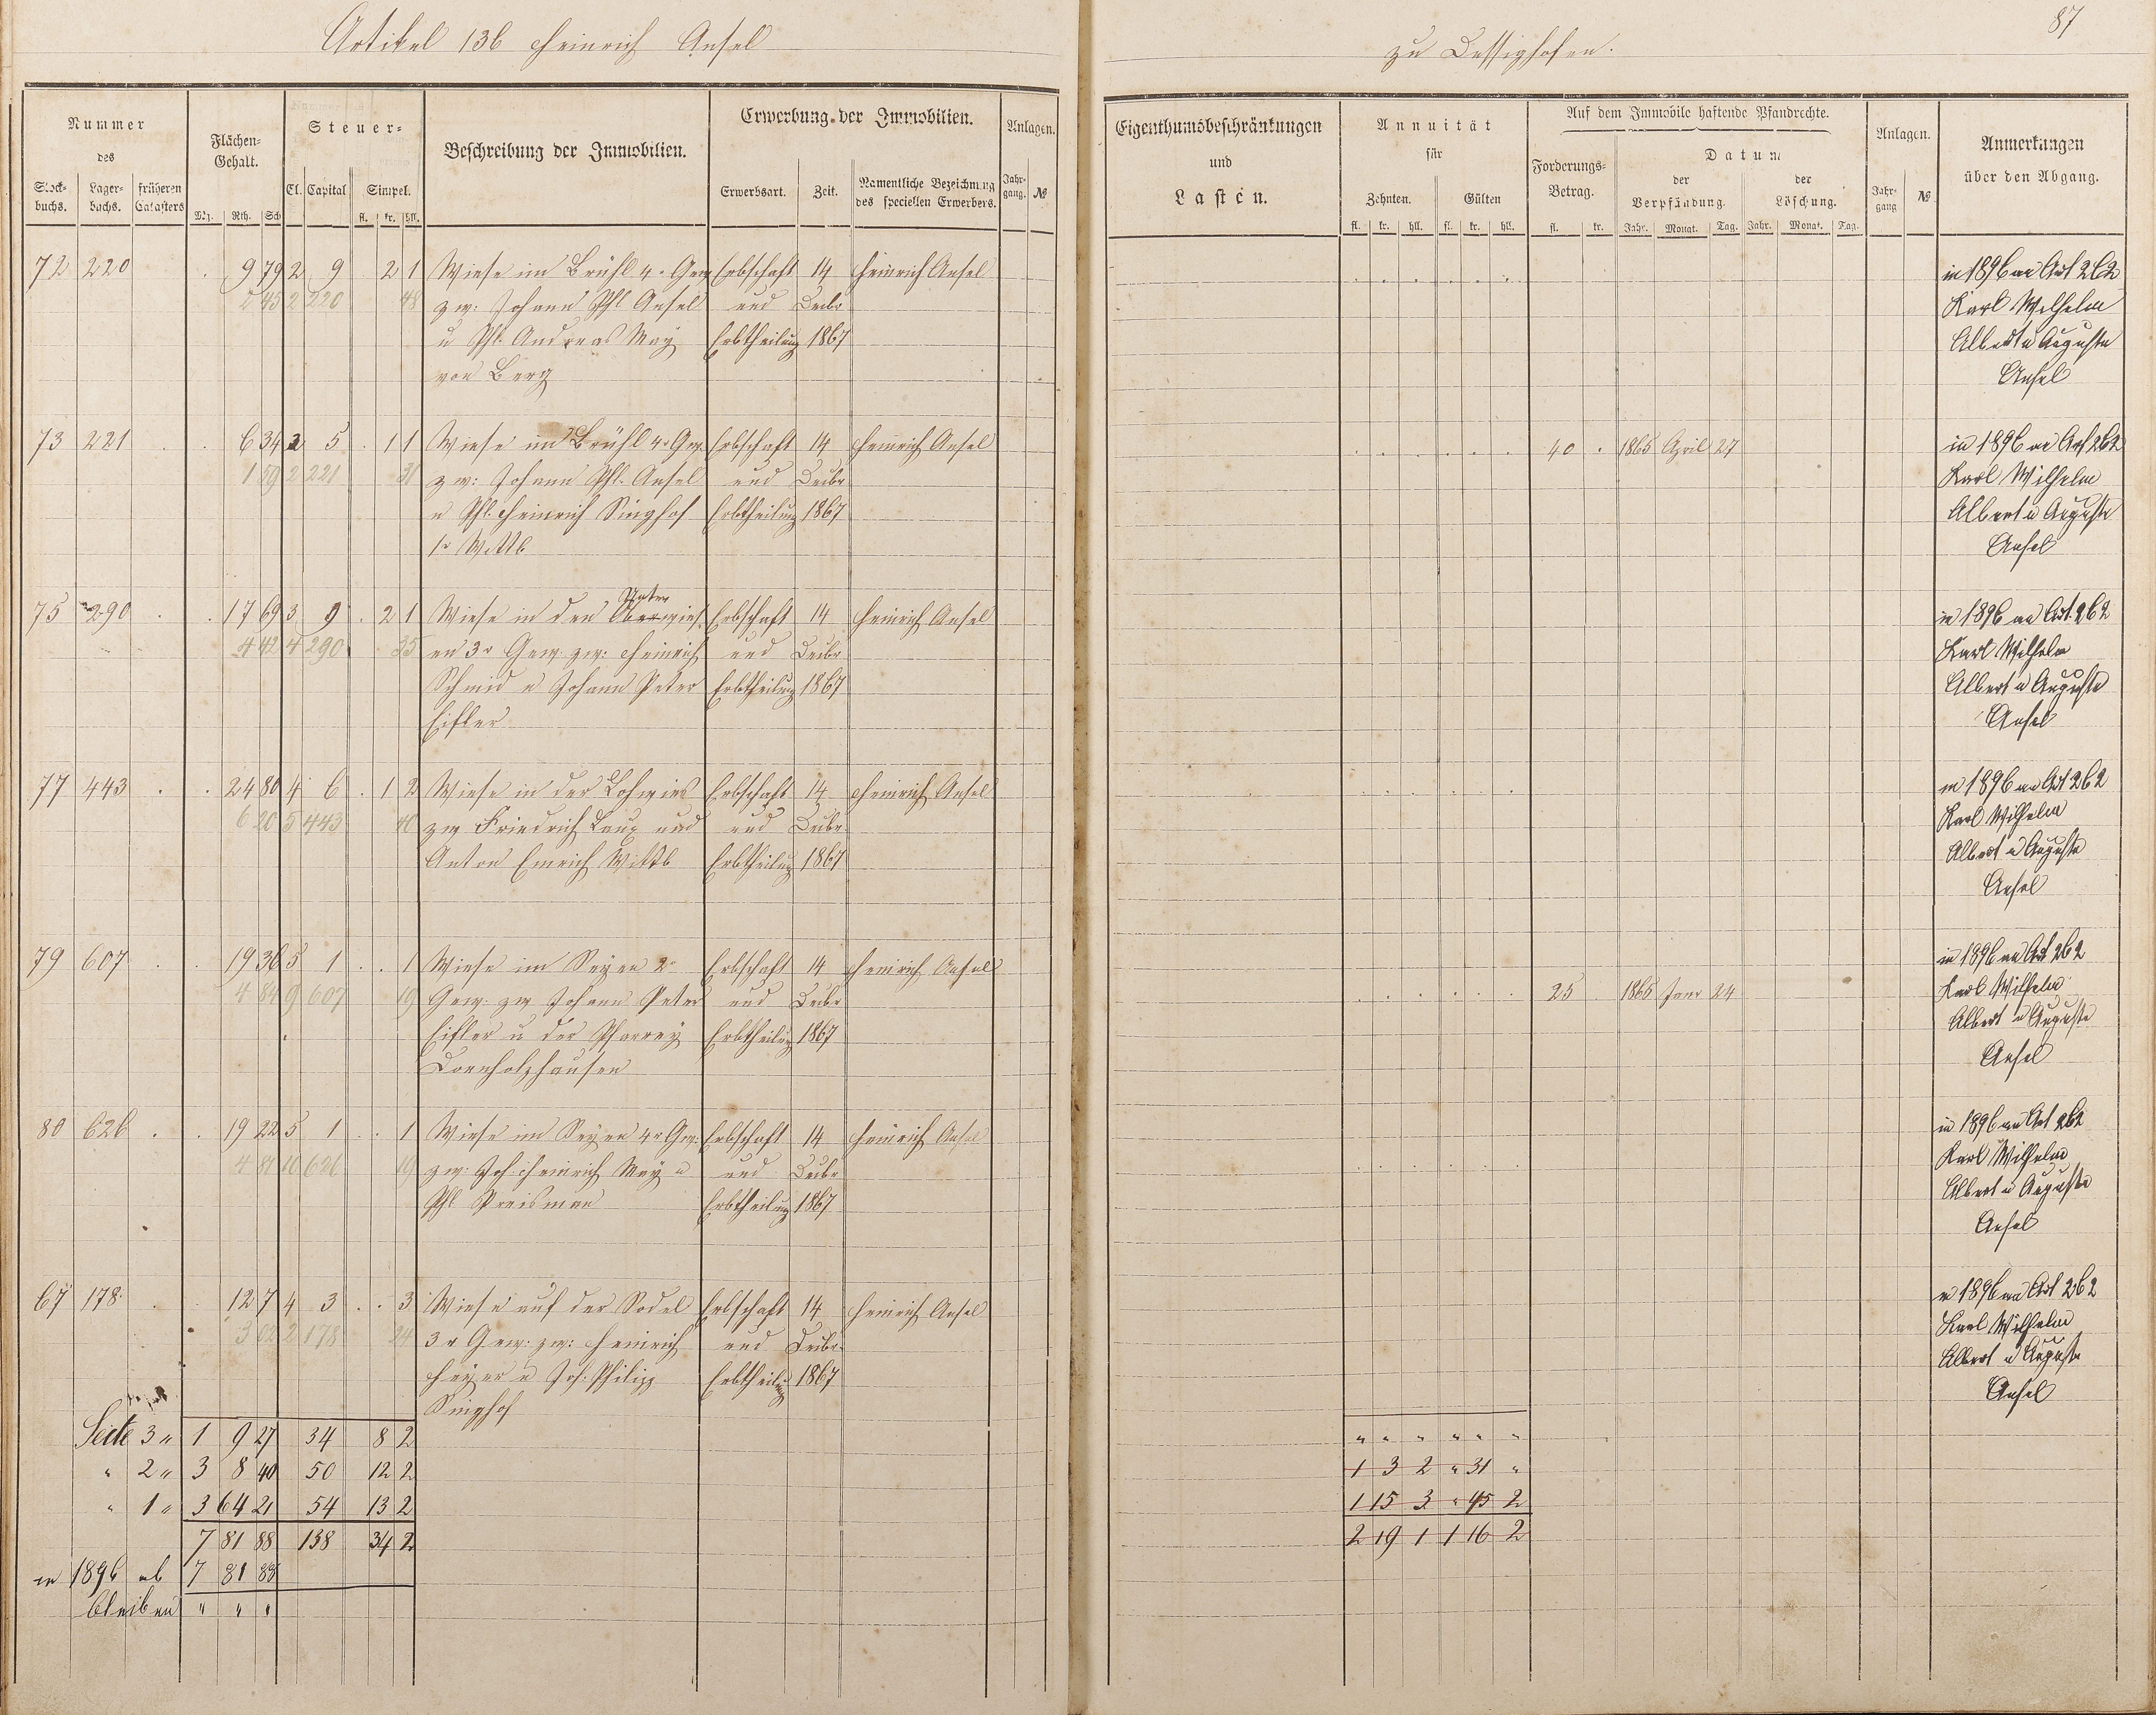 Artikel 136 Heinrich Ansel
zu Dessighofen.
87
Nummer
des
Stock-buchs. Lager-buchs. früheren Catasters
Flächen-Gehalt.
Mg. Rth. Sch
Steuer-
Cl. Capital Simpel.
fl. kr. hll.
Beschreibung der Immobilien.
Erwerbung der Immobilien.
Erwerbsart. Zeit. Namentliche Bezeichnung des speciellen Erwerbers.
Anlagen.
Jahr-gang. №
Eigenthumsbeschränkungen
und
Lasten.
Annuität
für
Zehnten. Gülten
fl. kr. hll. fl. kr. hll.
Auf dem Immobile haftende Pfandrechte.
Forderungs-Betrag.
fl. kr.
Datum
der Verpfändung. der Löschung.
Jahr. Monat. Tag. Jahr. Monat. Tag.
Anlagen.
Jahr-gang №
Anmerkungen
über den Abgang.
72 220 . 9 79 2 9 2 1 Wiese im Brühl 4r Gew Erbschaft 14 Heinrich Ansel in 1896 an Art 262
2 45 2 220 48 zw: Johann Phl Ansel und Decbr Karl Wilhelm
u Phl. Andreas May Erbtheilung 1867 Albert u Auguste
von Berg Ansel
73 221 . . 6 34 2 5 . 1 1 Wiese im Brühl 4r Gew. Erbschaft 14 Heinrich Ansel 40 . 1865 April 27 in 1896 an Art 262
1 59 2 221 31 zw: Johann Phl. Ansel und Decbr Karl Wilhelm
u Phl. Heinrich Singhof Erbtheilung 1867 Albert u Auguste
1r Wttb Ansel
75 290 . . 17 69 3 9 . 2 1 Wiese in den Oberwies Erbschaft 14 Heinrich Ansel in 1896 an Art. 262
Unter
4 42 4 290 35 en 3r Gew. zw: Heinrich und Decbr Karl Wilhelm
Schmid u Johann Peter Erbtheilung 1867 Albert u Auguste
Eifler Ansel
77 443 . . 24 80 4 6 . 1 2 Wiese in der Lohwies Erbschaft 14 Heinrich Ansel in 1896 an Art 262
6 20 5 443 40 zw Friedrich Laux und und Decbr Karl Wilhelm
Anton Emrich Wittb Erbtheilung 1867 Albert u Auguste
Ansel
79 607 . . 19 36 5 1 . . 1 Wiese im Seyen 2r Erbschaft 14 Heinrich Ansel in 1896 an Art 262
4 84 9 607 19 Gew. zw Johann Peter und Decbr 25 1865 Janr 24 Karl Wilhelm
Eifler u der Pfarrey Erbtheilung 1867 Albert u Auguste
Dornholzhausen Ansel
80 626 . . 19 22 5 1 . . 1 Wiese im Seyen 4r Gew: Erbschaft 14 Heinrich Ansel in 1896 an Art 262
4 81 10 626 19 zw: Joh. Heinrich May u und Decbr Karl Wilhelm
Phl Preisman Erbtheilung 1867 Albert u Auguste
Ansel
67 178 . . 12 7 4 3 . . 3 Wiese auf der Sodel Erbschaft 14 Heinrich Ansel in 1896 an Art 262
3 02 2 178 24 3r Gew: zw: Heinrich und Decbr Karl Wilhelm
Heyer u Joh. Philipp Erbtheilung 1867 Albert u Auguste
Singhof Ansel
Seite 3 " 1 9 27 34 8 2 " " " " " "
" 2 " 3 8 40 50 12 2 1 3 2 " 31 "
" 1 " 3 64 21 54 13 2 1 15 3 " 45 2
7 81 88 138 34 2 2 19 1 1 16 2
in 1896 ab 7 81 88
bleiben " " "